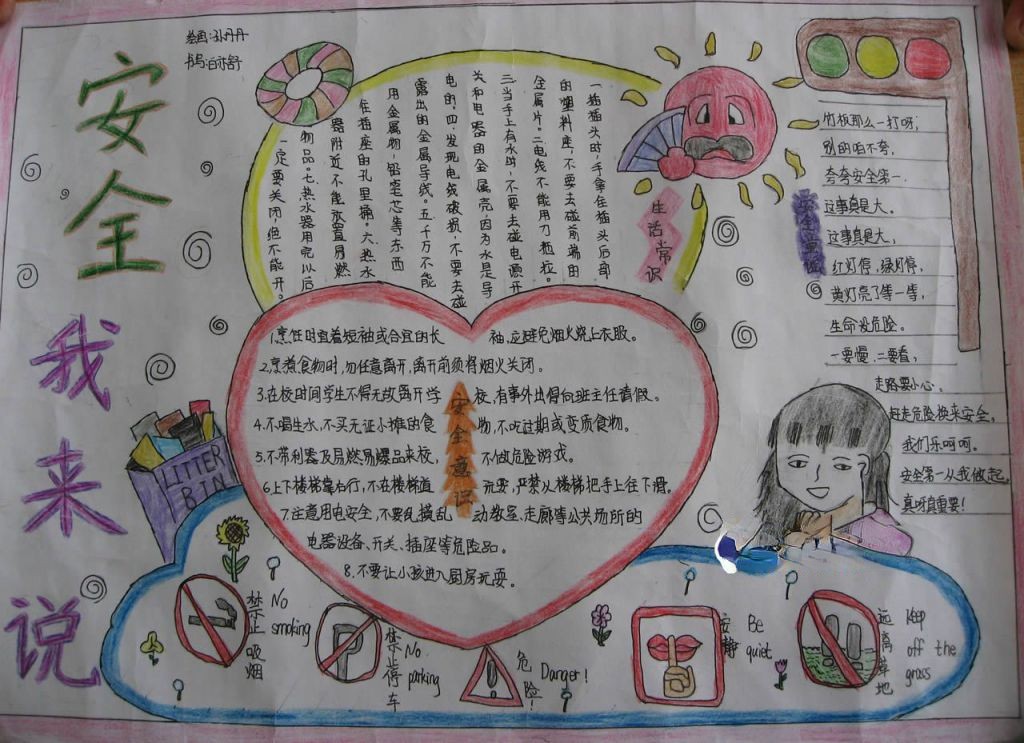 安全我来说
绘画:孙丹丹
一插插头时,手拿在插头后部
的塑料座,不要去碰前端的
金属片。二电线不能用力拖拉。
三当手上有水时,不要去碰电源开
关和电器的金属壳,因为水是导
电的。四.发现电线破损,不要去碰
露出的金属导线。五.千万不能
用金属物,铅笔芯等东西
在插座的孔里捅。六.热水
器附近不能放置易燃
物品。七.热水器用完以后
一定要关闭,但不能开。
生活常识
竹板那么一打呀,
别的咱不夸,
夸夸安全第一.
这事真是大。
这事真是大,
红灯停,绿灯停,
黄灯亮了等一等,
生命没危险。
一要慢,二要看,
走路要小心。
赶走危险换来安全,
我们乐呵呵。
安全第一从我做起,
真呀真重要!
1.烹饪时宜着短袖或合宜的长袖,应避免烟火烧上衣服。
2.烹煮食物时,勿任意离开,离开前须将烟火关闭。
3.在校时间学生不得无故离开学校,有事外出得向班主任请假。
4.不喝生水,不买无证小摊的食物,不吃过期或变质食物。
5.不带利器及易燃易爆品来校,不做危险游戏。
6.上下楼梯靠右行,不在楼梯道玩耍,严禁从楼梯把手上往下滑。
7.注意用电安全,不要乱摸乱动教室、走廊等公共场所的
电器设备、开关、插座等危险品。
8.不要让小孩进入厨房玩耍。
安全意识
LITTER
BIN
禁止吸烟
No
smoking
P
禁止停车
No
parking
危险!
Danger!
安静
Be
quiet
远离草地
Keep
off the
grass